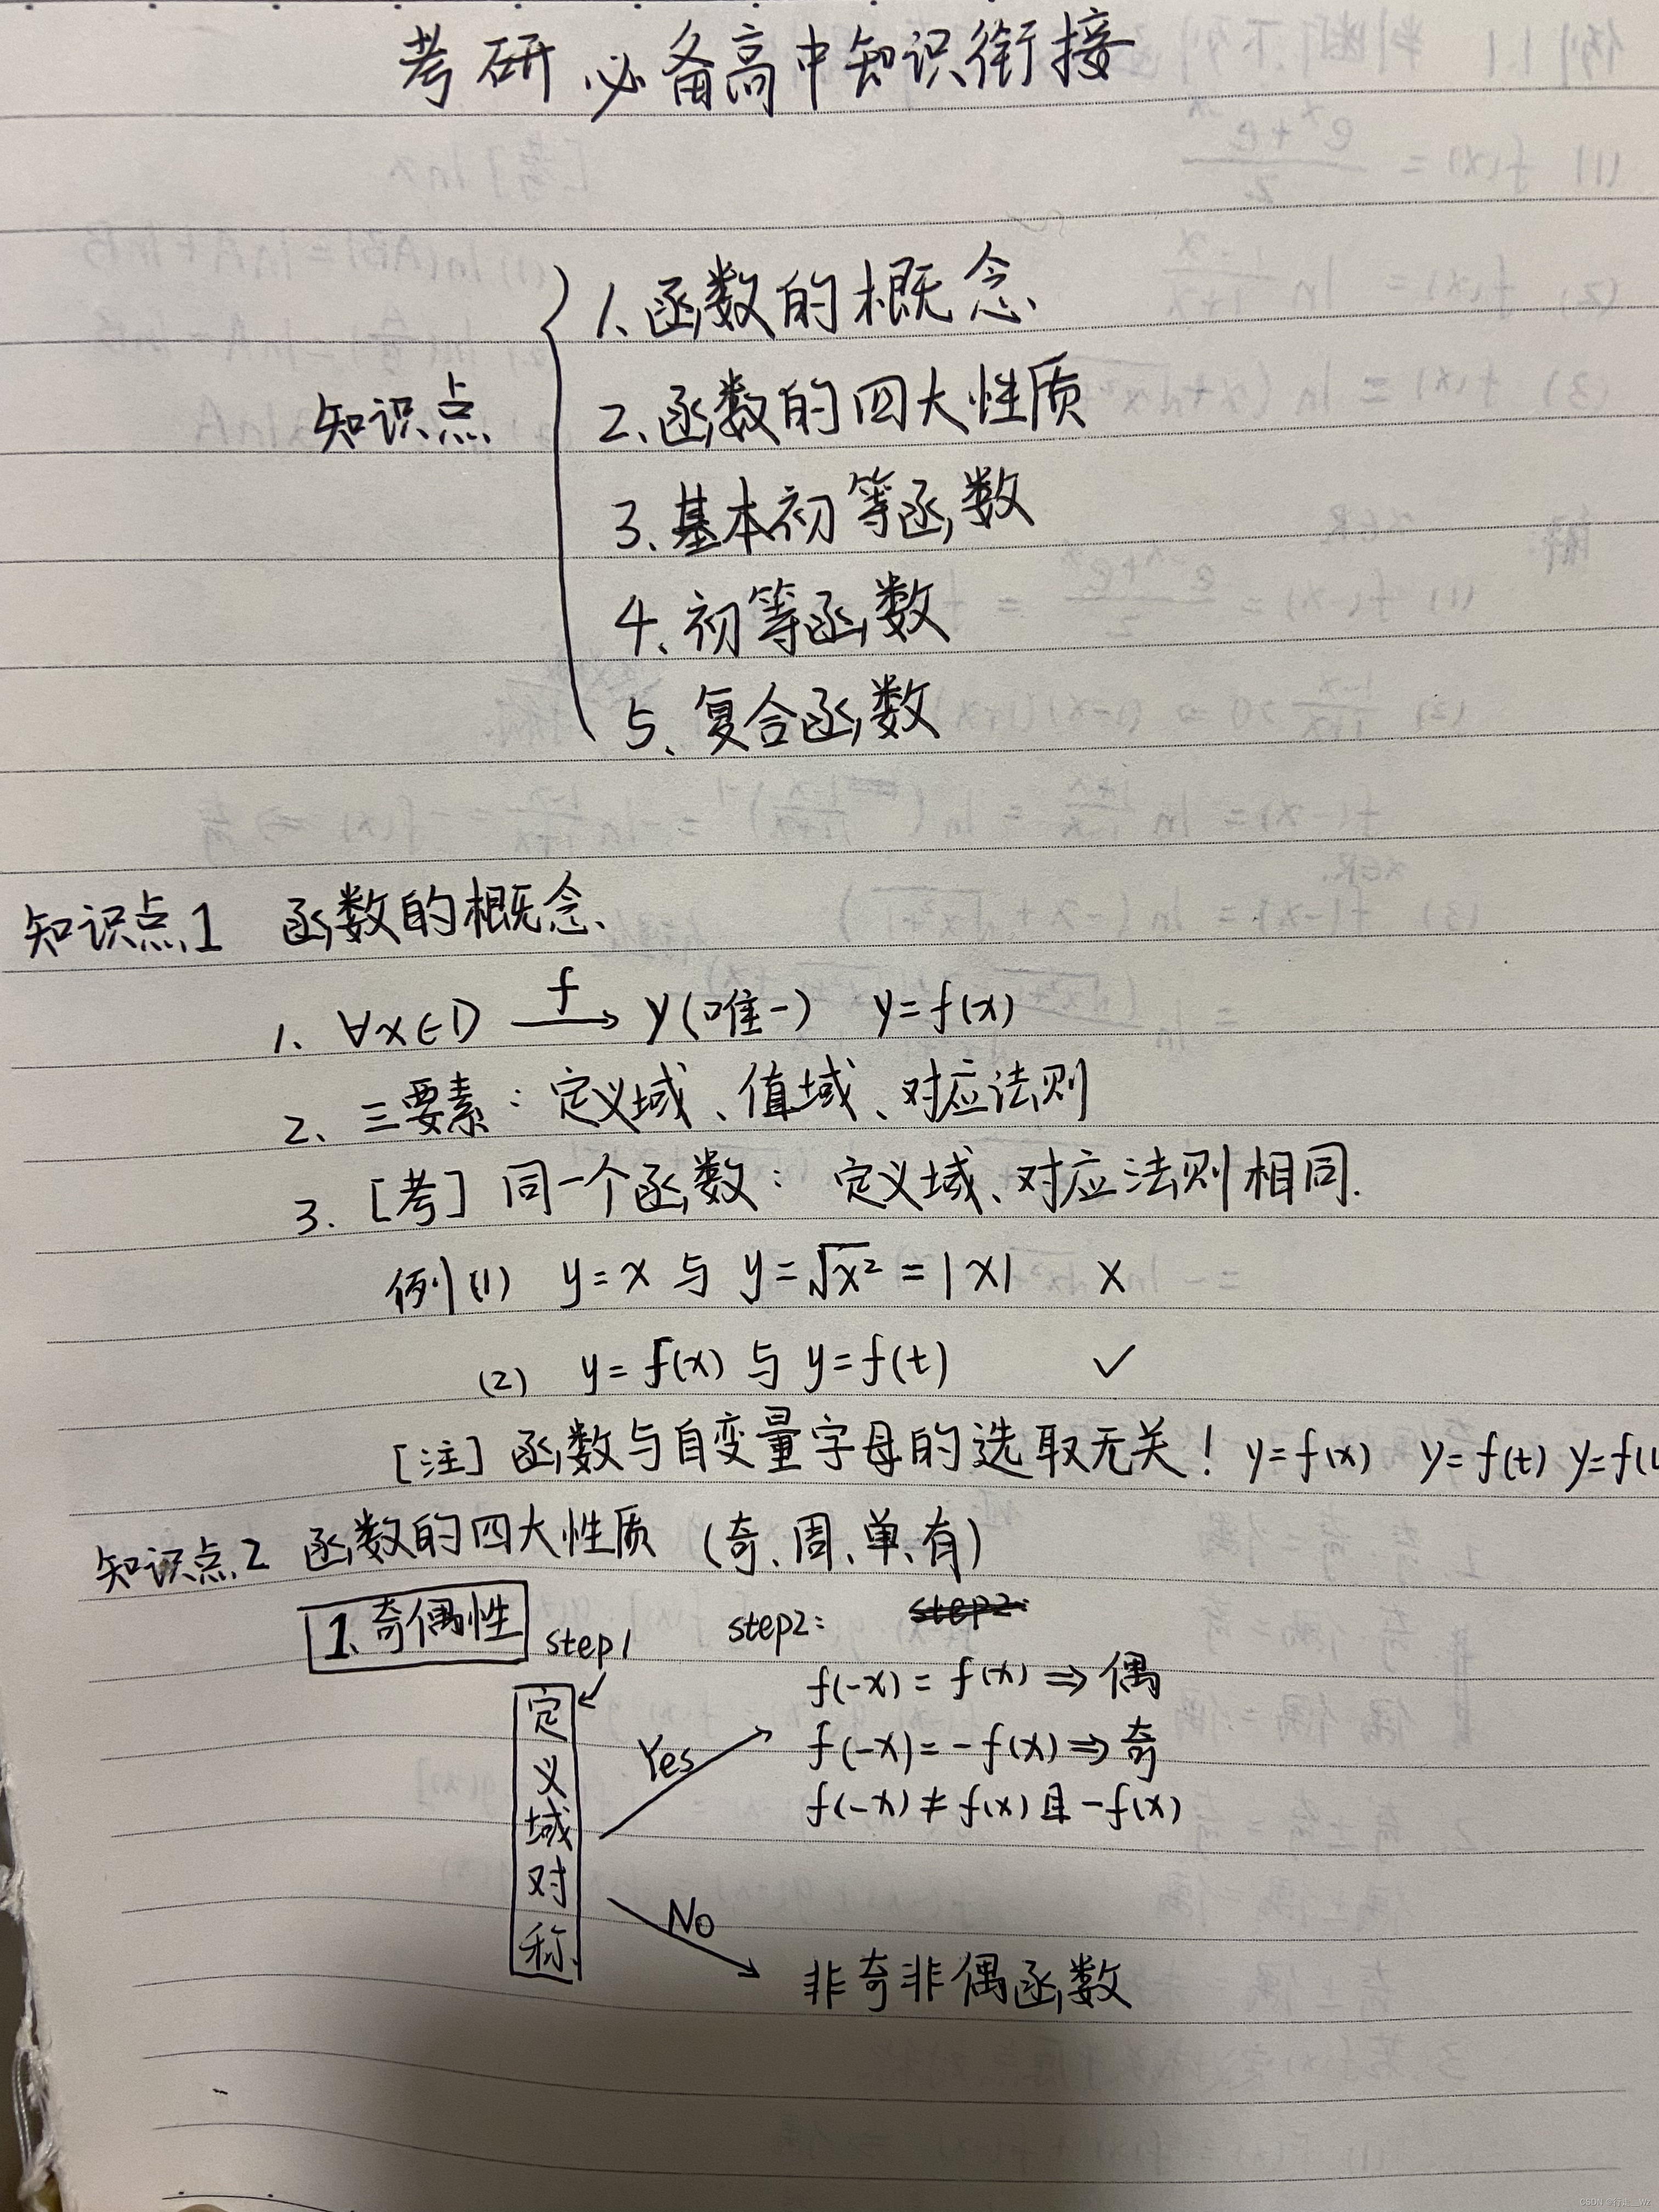 考研必备高中知识衔接
知识点
1、函数的概念
2、函数的四大性质
3、基本初等函数
4、初等函数
5、复合函数
知识点1 函数的概念
1、∀x∈D \xrightarrow{f} y(唯一) y=f(x)
2、三要素：定义域、值域、对应法则
3. [考] 同一个函数：定义域、对应法则相同.
例(1) y=x 与 y=√x² =|x| ×
(2) y=f(x) 与 y=f(t) ✓
[注] 函数与自变量字母的选取无关！y=f(x) y=f(t) y=f(
知识点2 函数的四大性质 (奇、周、单、有)
1、奇偶性 step1 step2:
定义域对称
Yes
f(-x)=f(x)⇒偶
f(-x)=-f(x)⇒奇
f(-x)≠f(x)且-f(x)
No
非奇非偶函数